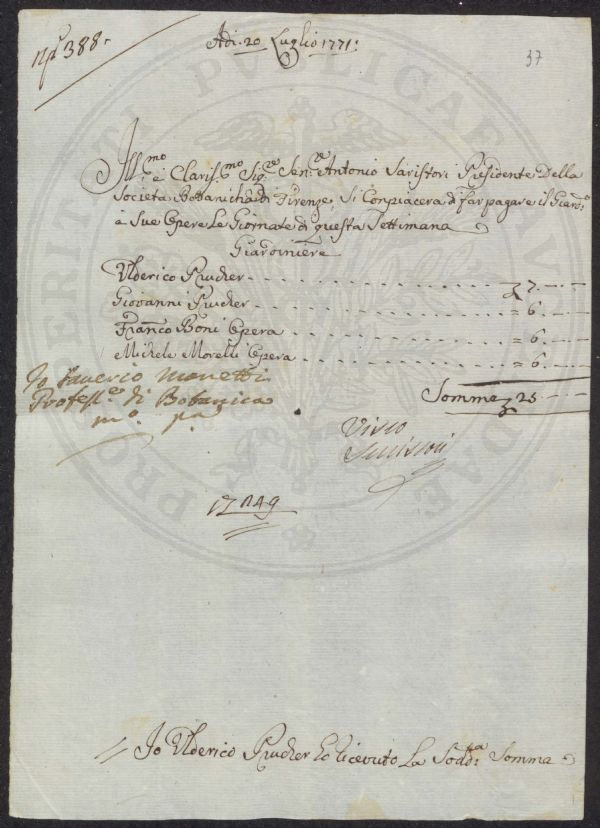 N.º 388.
Adi. 20 Luglio 1771:
37
Ill.mo e Claris.mo Sig.re Sen.re Antonio Saristori Presidente Della
Societa Botanicha Di Firenze, Si Conpiacera d far pagare il Giard:e
e Sue Opere Le Giornate di questa Settimana
Giardiniere
Ulderico Prucher . . . . . . . . . . . . . 7. — —
Giovanni Prucher . . . . . . . . . . . . = 6. — —
Franco Boni Opera . . . . . . . . . . . . = 6. — —
Michele Morelli Opera . . . . . . . . . . = 6. — —
Somma 25 — —
Io Saverio Manetti
Profess.e di Botanica
m.o p.a
Visto
Io Ulderico Prucher ho ricevuto La Sodd:a Somma
PROSPERITATI PVBLICAE AVGENDAE